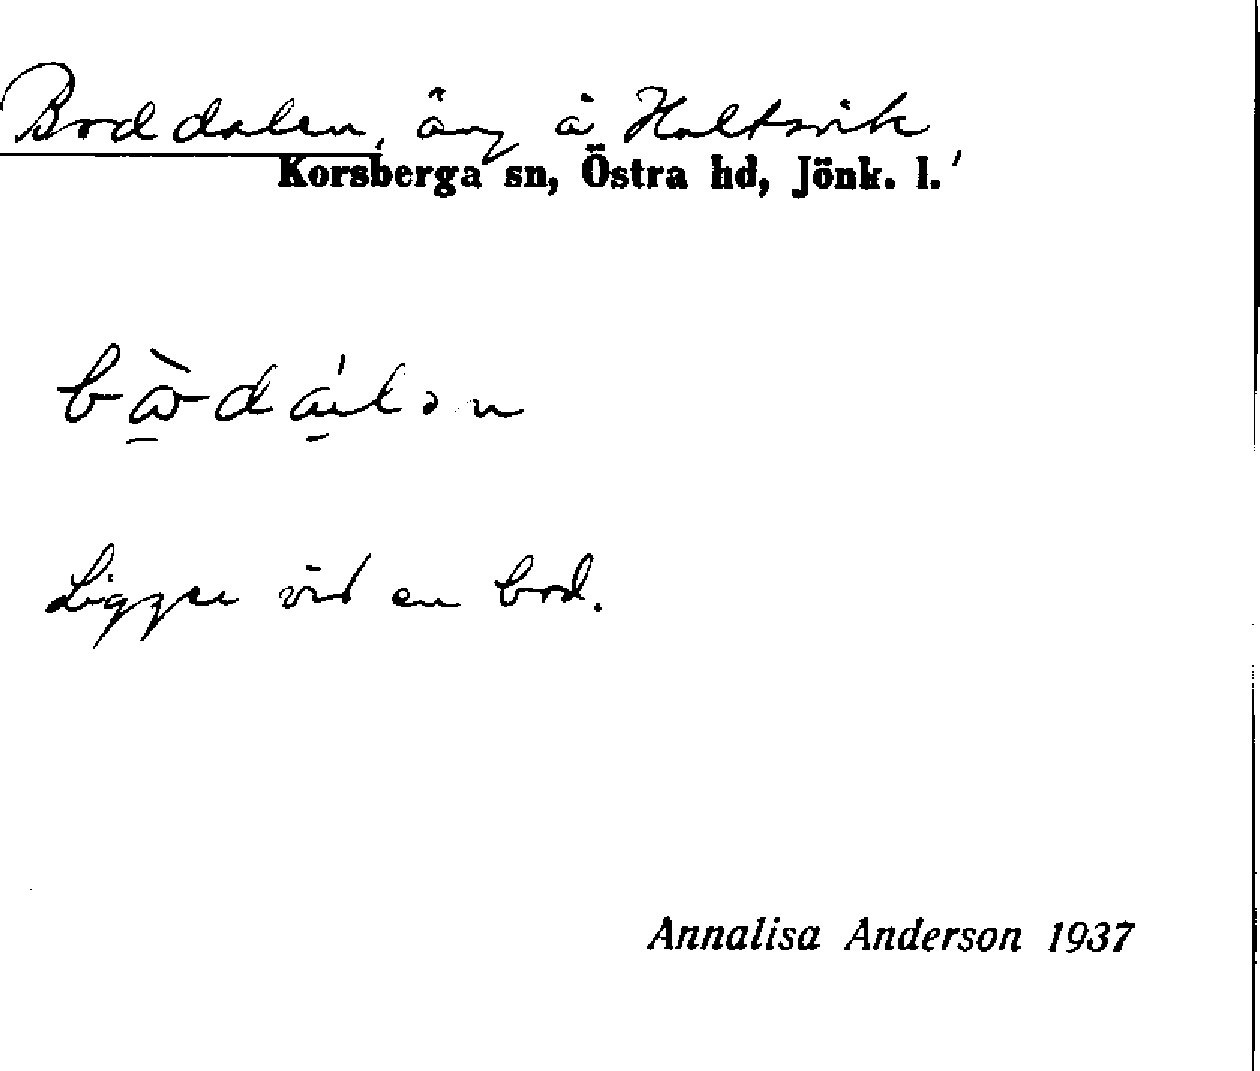 Boddalen, äng å Hultsvik
Korsberga sn, Östra hd, Jönk. l.
Ligger vid en bod.
Annalisa Anderson 1937